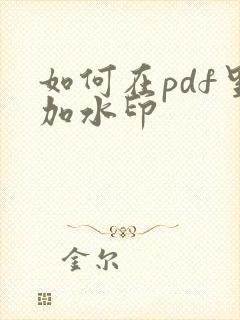 如何在pdf里
加水印
金尔